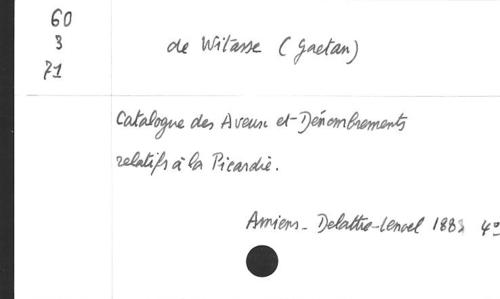 60
3
71
de Witasse (Gaetan)
Catalogue des Aveux et Dénombrements
relatifs à la Picardie.
Amiens - Delattre-Lenoel 4°